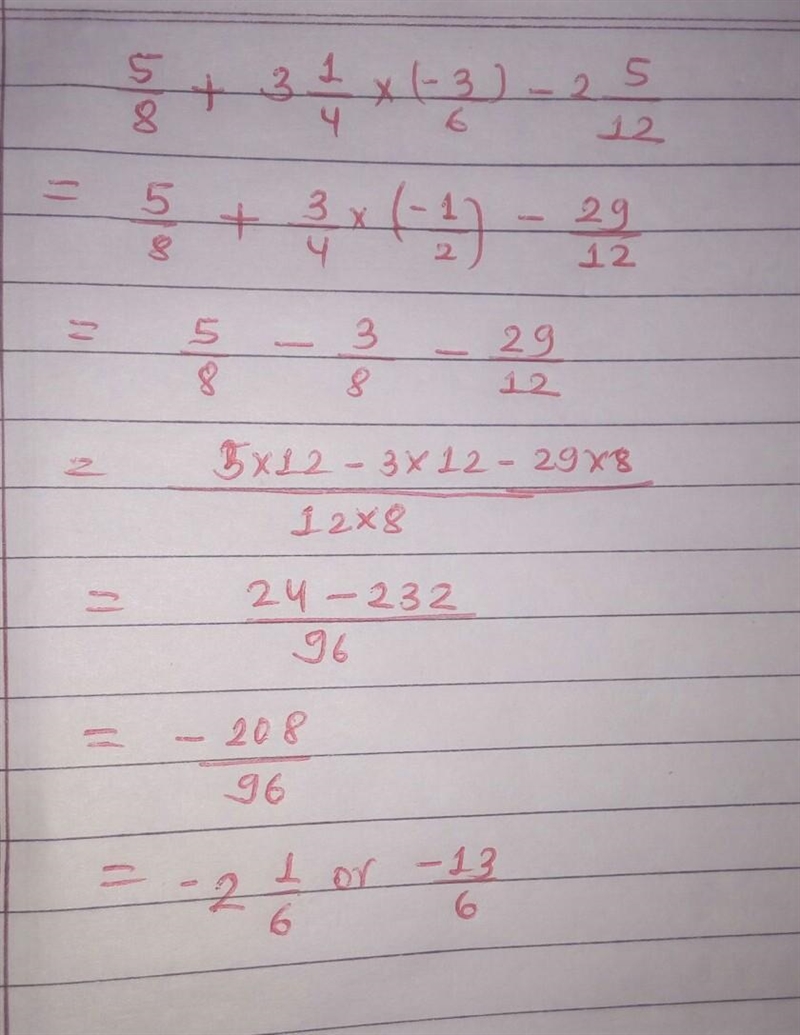 5/8 + 3 1/4 × (-3/6) - 2 5/12
= 5/8 + 3/4 × (-1/2) - 29/12
= 5/8 - 3/8 - 29/12
= 5×12 - 3×12 - 29×8 / 12×8
= 24 - 232 / 96
= - 208/96
= - 2 1/6 or -13/6